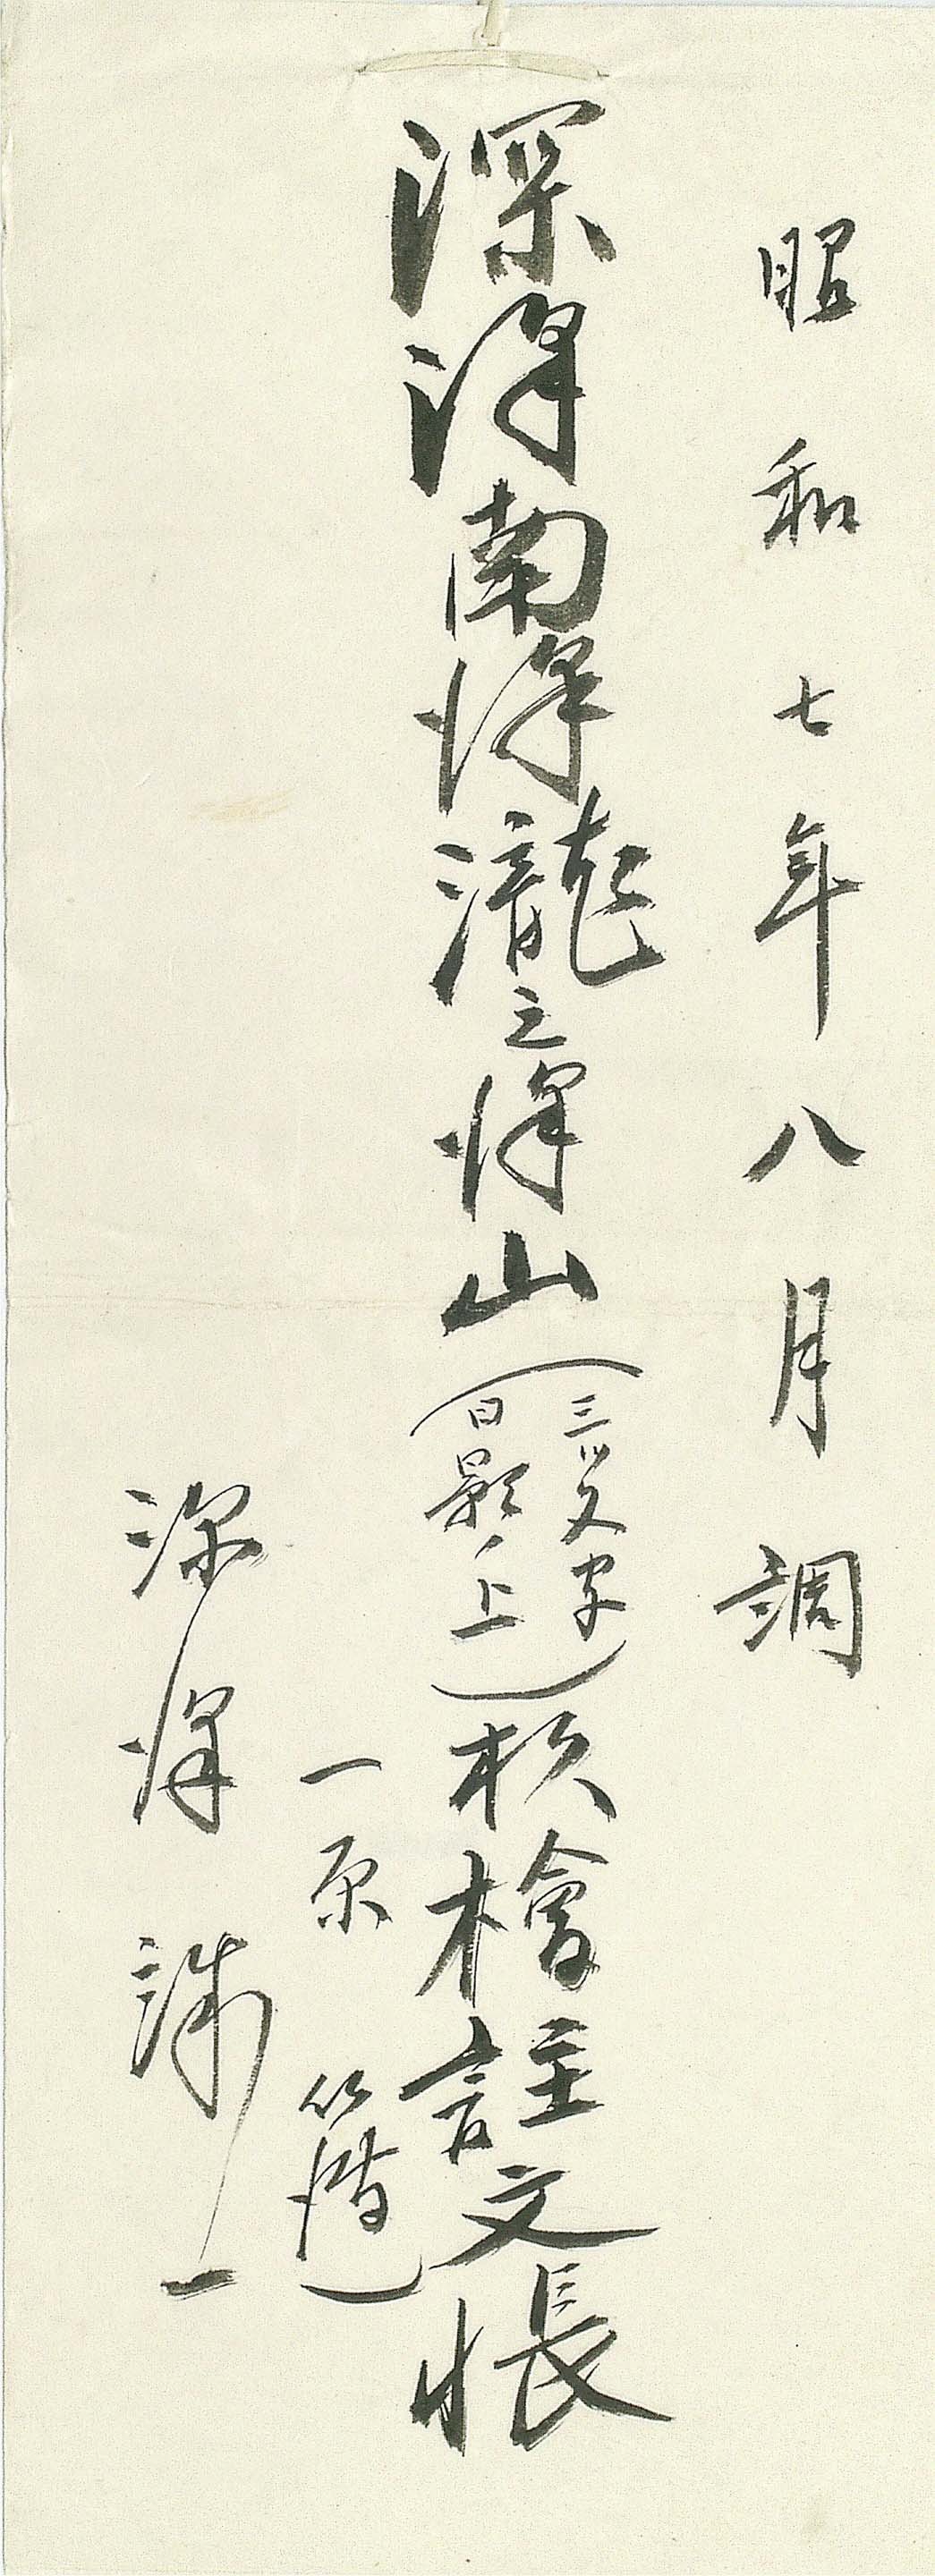 昭和七年八月調
深澤南澤瀧之澤山(三ツ又字 日影ノ上)杦檜註文帳
一原
深澤 一